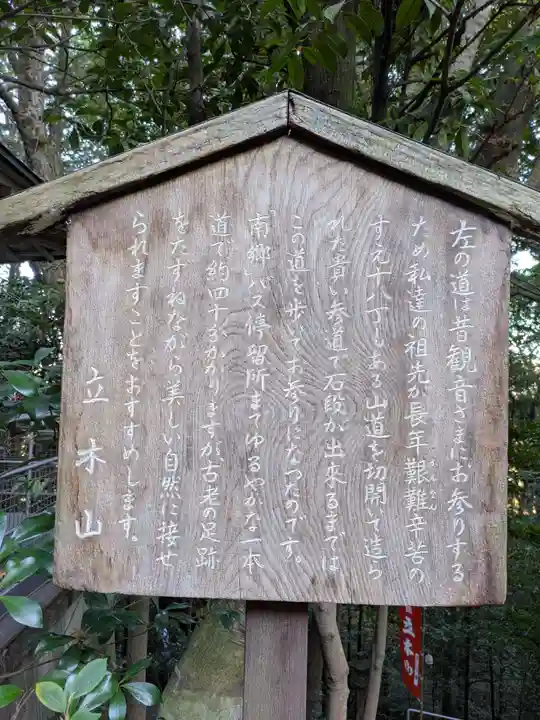 左の道は昔観音さまにお参りする
ため私達の祖先が長年艱難辛苦の
かんなん
すえ十八丁もある山道を切開て造ら
れた貴い参道で石段が出来るまでは
この道を歩いてお参りになつたのです。
「南郷」バス停留所までゆるやかな一本
道で約四十分かかりますが古老の足跡
をたずねながら美しい自然に接せ
られますことをおすすめします。
立木山
立木